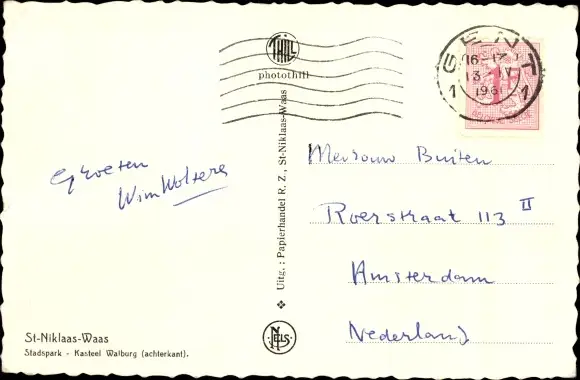 THILL
photothill
GENT
16-17
13 IV
1961
1 1
Groeten
Wim Wolters
Mevrouw Buiten
Roerstraat 113 II
Amsterdam
Nederland
Uitg. : Papierhandel R. Z., St-Niklaas-Waas
NELS
St-Niklaas-Waas
Stadspark - Kasteel Walburg (achterkant).